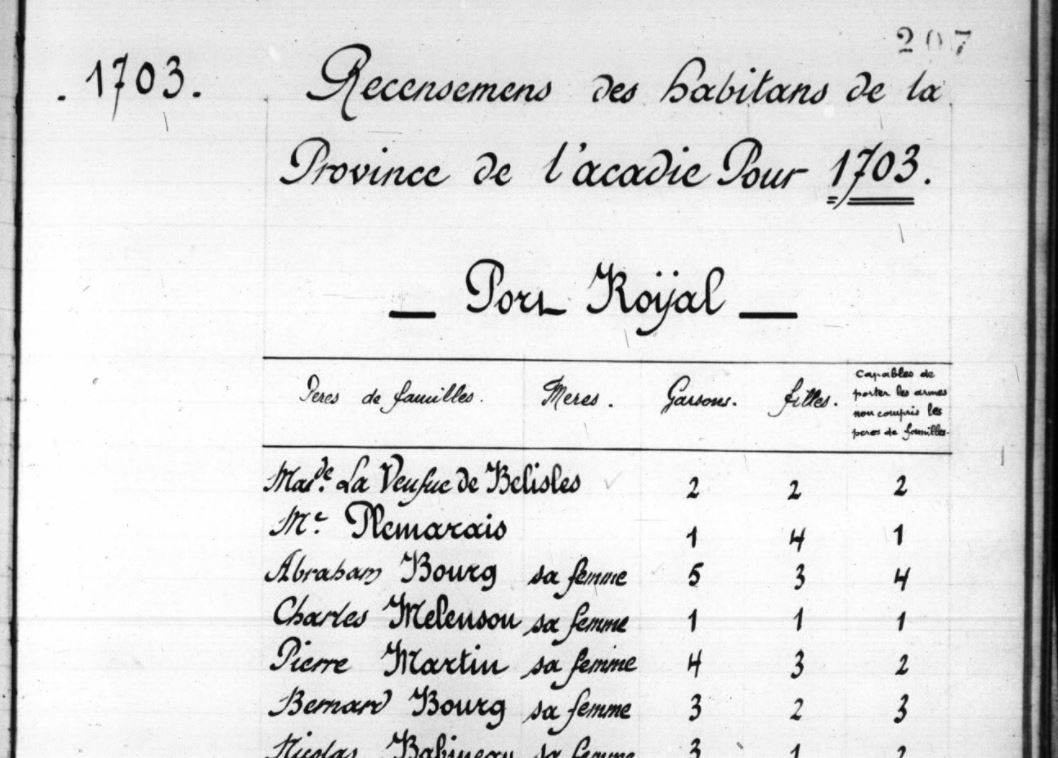 207
1703. Recensemens des habitans de la
Province de l'acadie Pour 1703.
Port Roÿal
Peres de familles. Meres. Garsons. filles. Capables de
porter les armes
non compris les
peres de familles.
Made. La Veufue de Belisles 2 2 2
Mr. 1 4 1
Abraham Bourg sa femme 5 3 4
Charles Melensou sa femme 1 1 1
Pierre Martin sa femme 4 3 2
Bernard Bourg sa femme 3 2 3
Nicolas Babineau sa femme 3 1 2